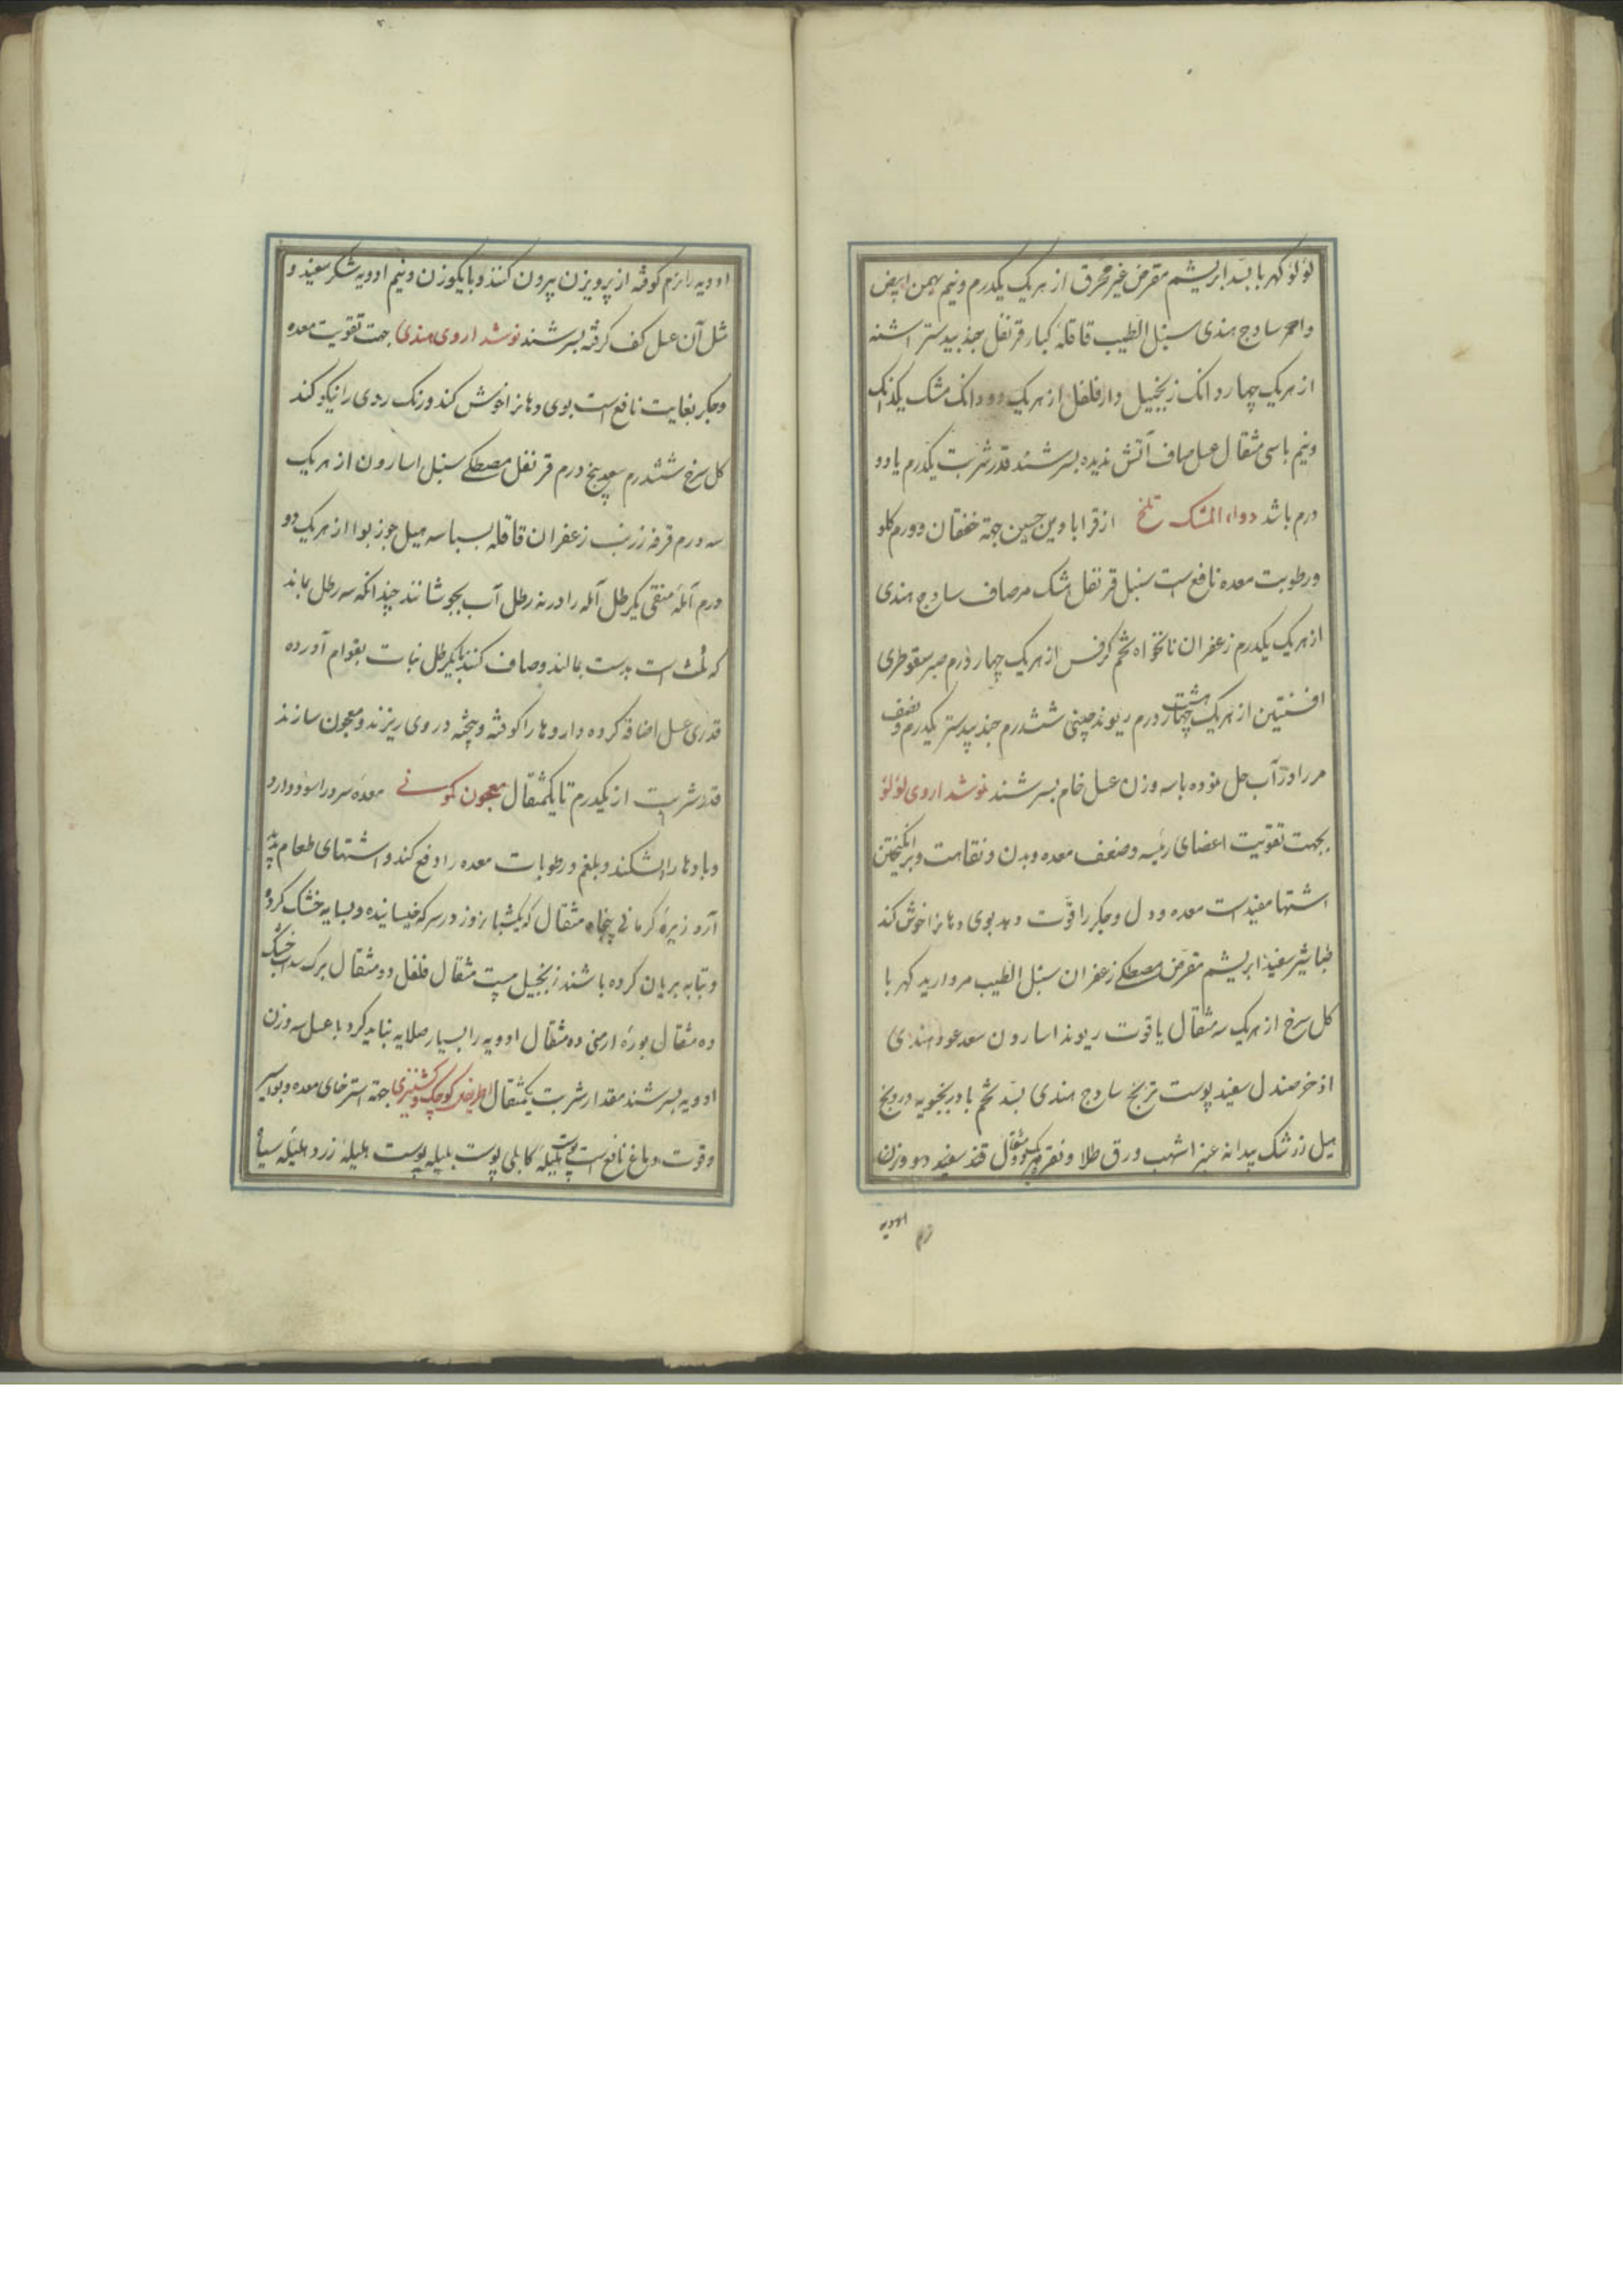 لؤلؤ کهربا بسد ابریشم مقرض غیر محرق از هر یک یکدرم و نیم بهمن ابیض
واحمر ساذج هندی سنبل الطیب قاقله کبار قرنفل جندبیدستر اشنه
از هر یک چهار دانک زنجبیل دارفلفل از هر یک دو دانک مشک یکدانک
ونیم باسی مثقال عسل صاف آتش ندیده بسرشند قدر شربت یکدرم یا دو
درم باشد دواء المشک تلخ از قرابادین حسین جهة خفقان و ورم کلو
ورطوبت معده نافع است سنبل قرنفل مشک مر صاف ساذج هندی
از هر یک یکدرم زعفران نانخواه تخم کرفس از هر یک چهار درم صبر سقوطری
افسنتین از هر یک هشت درم ریوند چینی ششدرم جندبیدستر یکدرم و نصف
مر را در آب حل نموده باسه وزن عسل خام بسرشند نوشداروی لؤلؤ
بجهت تقویت اعضای رئیسه وضعف معده وبدن ونقاهت وبرانکیختن
اشتها مفید است معده و دل وجکر را قوت دهد بوی دهانرا خوش کند
طباشیر سفید ابریشم مقرض مصطکی زعفران سنبل الطیب مروارید کهربا
کل سرخ از هر یک سه مثقال یاقوت ریوند اسارون سعد عود هندی
اذخر صندل سفید پوست ترنج ساذج هندی بسد تخم بادرنجبویه درونج
هیل زرشک بیدانه عنبر اشهب ورق طلا ونقره مثقال قند سفید دو وزن
ادویه
ادویه را نرم کوفته از پرویزن بیرون کنند وبا یکوزن ونیم ادویه شکر سفید و
مثل آن عسل کف کرفته بسرشند نوشداروی هندی جهت تقویت معده
وجکر بغایت نافع است بوی دهانرا خوش کند ورنک ردی را نیکو کند
کل سرخ ششدرم سعد پنج درم قرنفل مصطکی سنبل اسارون از هر یک
سه درم قرفه زرنب زعفران قاقله بسباسه هیل جوزبوا از هر یک دو
درم آمله منقی یکرطل آمله را در نه رطل آب بجوشانند چندانکه سه رطل بماند
که ثلث است بدست بمالند وصاف کنند با یکرطل نبات بقوام آورده
قدری عسل اضافه کرده داروها را کوفته وبیخته در وی ریزند ومعجون سازند
قدر شربت از یکدرم تا یکمثقال معجون کمونی معده سرد را سود دارد
وبادها را بشکند وبلغم ورطوبات معده را دفع کند واشتهای طعام پدید
آرد زیره کرمانی پنجاه مثقال که یکشبانروز در سرکه خیسانیده وبسایه خشک کرده
وبتابه بریان کرده باشند زنجبیل بیست مثقال فلفل دو مثقال برک سداب خشک
ده مثقال بوره ارمنی ده مثقال ادویه را بسیار صلایه نباید کرد با عسل سه وزن
ادویه بسرشند مقدار شربت یکمثقال اطریفل کوچک کشنیزی جهة استرخای معده وبواسیر
وقوت دماغ نافع است پوست هلیله کابلی پوست بلیله پوست هلیله زرد هلیله سیاه